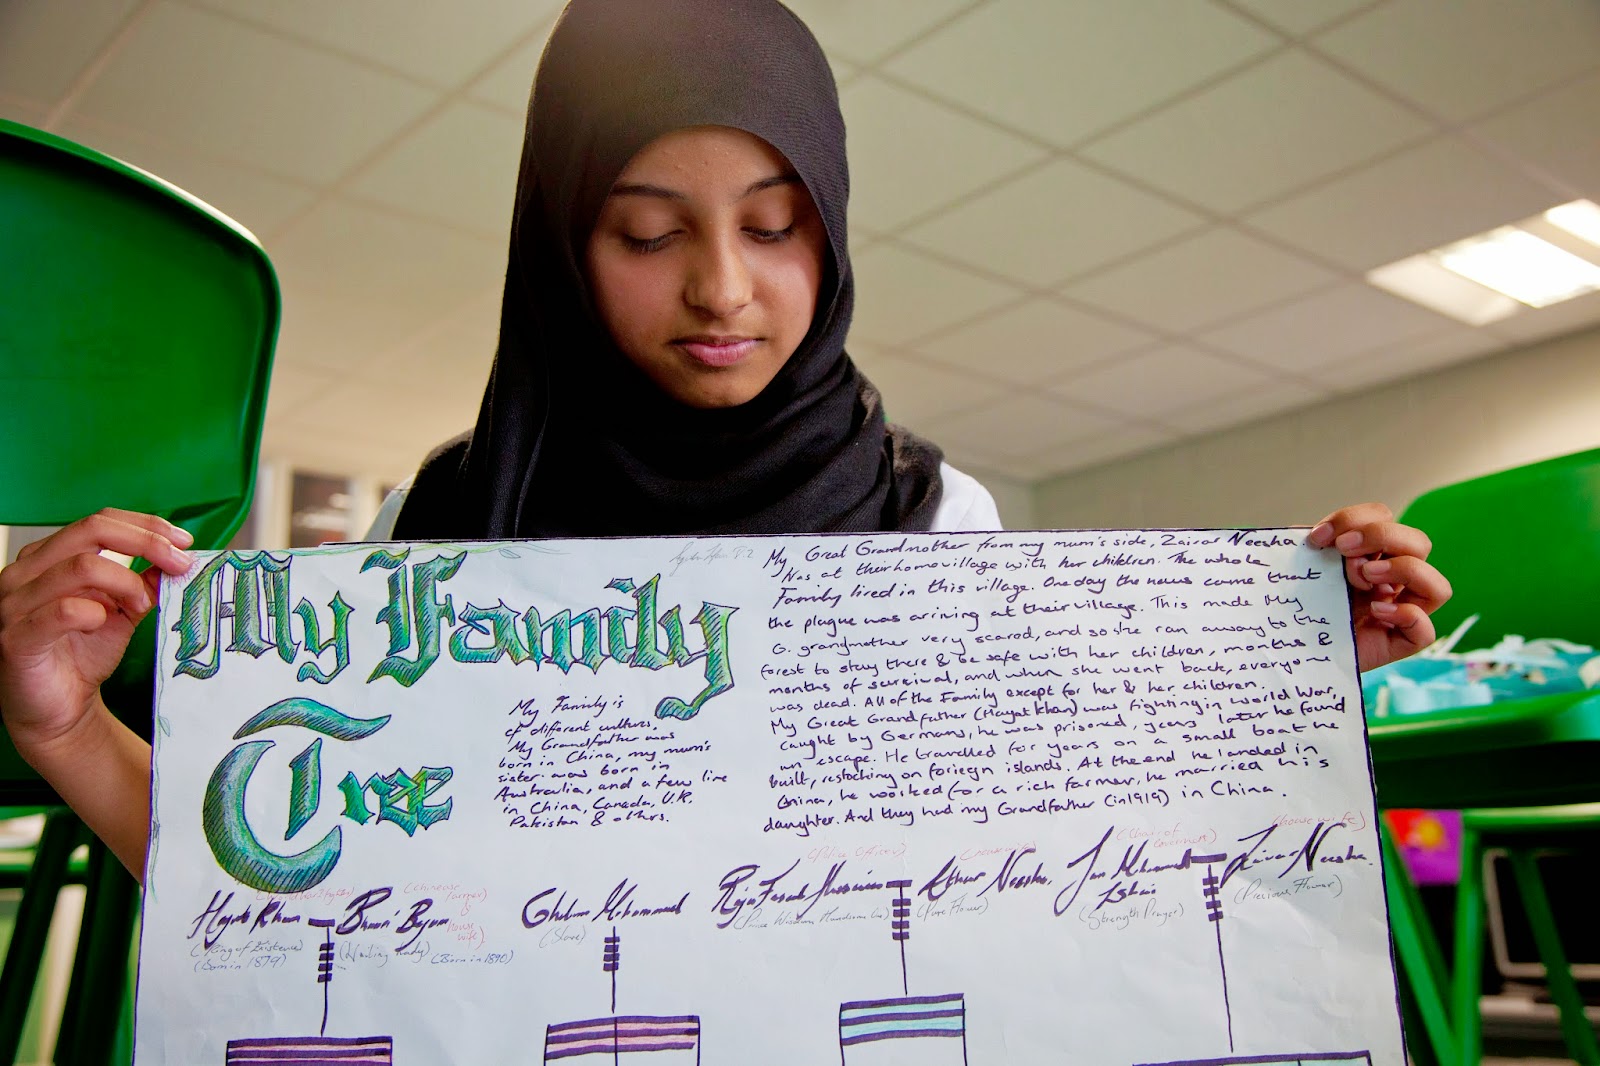 My Family
Tree
My Family is
of different cultures.
My Grandfather was
born in China, my mum's
sister was born in
Australia, and a few live
in China, Canada, U.K,
Pakistan & others.
My Great Grandmother from my mum's side, Zaivar Neesha.
Was at their home village with her children. The whole
Family lived in this village. One day the news came that
the plague was arriving at their village. This made My
G. grandmother very scared, and so she ran away to the
forest to stay there & be safe with her children, months &
months of survival, and when she went back, everyone
was dead. All of the Family except for her & her children.
My Great Grandfather (Hayat Khan) was fighting in World War,
caught by Germans, he was prisoned, years later he found
an escape. He travelled for years on a small boat he
built, restocking on foriegn islands. At the end he landed in
China, he worked for a rich farmer, he married his
daughter. And they had my Grandfather (in 1919) in China.
(Police Officer) (housewife) (Chair of Goverment) (house wife)
Hayat Khan Banni Begum (Chinease farmer & house wife)
(King of Existence) (Born in 1879) (Waiting Lady) (Born in 1890)
Ghulam Mohammed
(Slave)
Raja Hussain Athar Neesha.
(Pure Flower)
Jan Mohammed Zaivar Neesha.
(Strength Prayer) (Precious Flower)